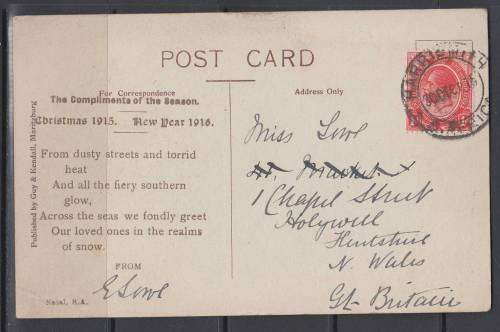 POST CARD
For Correspondence
Address Only
The Compliments of the Season.
Christmas 1915. New Year 1916.
From dusty streets and torrid
heat
And all the fiery southern
glow,
Across the seas we fondly greet
Our loved ones in the realms
of snow.
FROM
E Lowe
Natal, S.A.
Published by Guy & Kendall, Maritzburg
Miss Lowe
1 Chapel Street
Holywell
Flintshire
N. Wales
Gt Britain